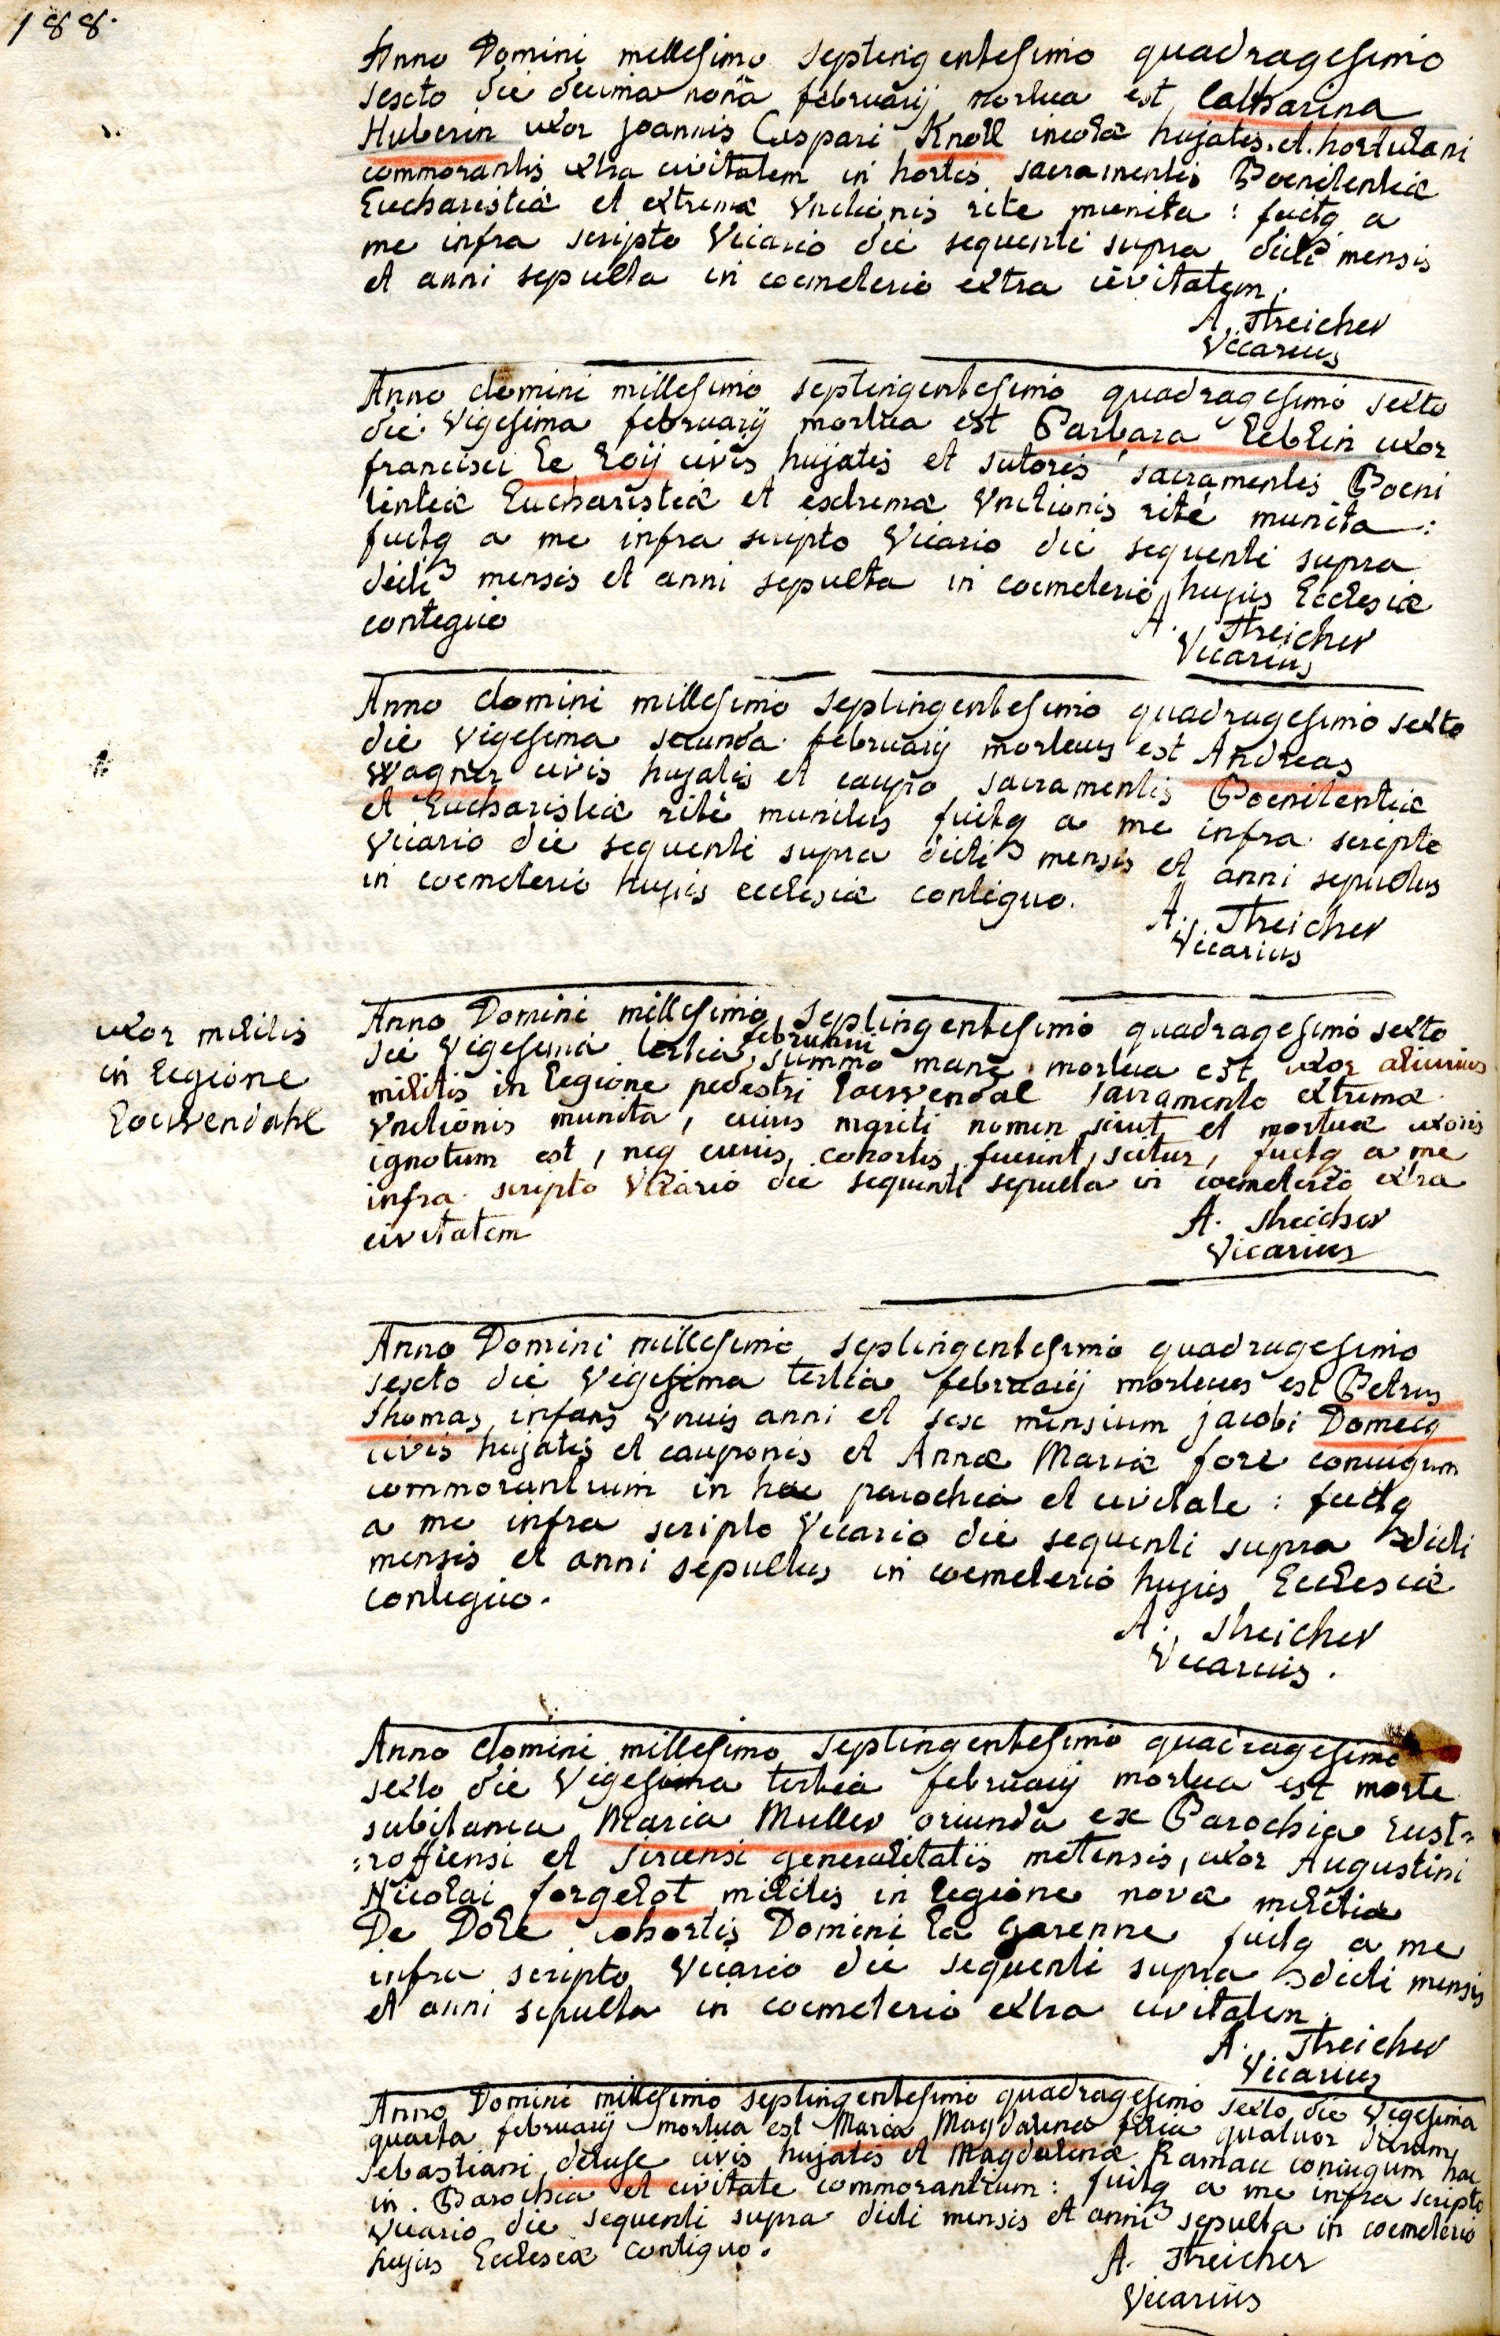 188.
Anno Domini millesimo septingentesimo quadragesimo
sexto die decima nona februarij mortua est Catharina
Huberin uxor joannis Caspari Knoll incolæ hujatis et hortulani
commorantis extra civitatem in hortis sacramentis Poenitentiæ
Eucharistiæ et extremæ Vnctionis rite munita : fuitq a
me infra scripto Vicario die sequenti supra dicti mensis
et anni sepulta in coemeterio extra civitatem.
A. Streicher
Vicarius
Anno domini millesimo septingentesimo quadragesimo sexto
die Vigesima februarij mortua est Barbara Leblin uxor
francisci Le Roij civis hujatis et sutoris sacramentis Poeni
tentiæ Eucharistiæ et extremæ Vnctionis rité munita :
fuitq a me infra scripto Vicario die sequenti supra
dicti mensis et anni sepulta in coemeterio hujus Ecclesiæ
contiguo
A. Streicher
Vicarius
Anno domini millesimo septingentesimo quadragesimo sexto
die Vigesima secunda februarij mortuus est Andreas
Wagner civis hujatis et caupo sacramentis Poenitentiæ
et Eucharistiæ rité munitus fuitq a me infra scripto
Vicario die sequenti supra dicti mensis et anni sepultus
in coemeterio hujus ecclesiæ contiguo.
A. Streicher
Vicarius
uxor militis
in legione
Loewendahl
Anno Domini millesimo septingentesimo quadragesimo sexto
die Vigesima tertia februarii summo mane mortua est uxor alicuius
militis in legione pedestri Loewendal sacramento extremæ
Vnctionis munita, cuius mariti nomen sicut et mortuæ uxoris
ignotum est, neq cuius cohortis fuerint, scitur, fuitq a me
infra scripto Vicario die sequenti sepulta in coemeterio extra
civitatem
A. Streicher
Vicarius
Anno Domini millesimo septingentesimo quadragesimo
sexto die Vigesima tertia februarij mortuus est Petrus
Thomas infans Vnius anni et sex mensium jacobi Domecq
civis hujatis et cauponis et Annæ Mariæ fore coniugum
commorantium in hac parochia et civitate : fuitq
a me infra scripto Vicario die sequenti supra dicti
mensis et anni sepultus in coemeterio hujus Ecclesiæ
contiguo.
A. Streicher
Vicarius.
Anno domini millesimo septingentesimo quadragesimo
sexto die Vigesima tertia februarij mortua est morte
subitanea Maria Muller oriunda ex Parochia rust=
=roffiensi et sircensi generalitatis metensis, uxor Augustini
Nicolai forgelot militis in legione novæ militiæ
De Dole cohortis Domini la garenne fuitq a me
infra scripto Vicario die sequenti supra dicti mensis
et anni sepulta in coemeterio extra civitatem.
A. Streicher
Vicarius
Anno Domini millesimo septingentesimo quadragesimo sexto die Vigesima
quarta februarij mortua est Maria Magdalena filia quatuor dierum
Sebastiani deluse civis hujatis et Magdalenæ Ramau coniugum hac
in Parochia et civitate commorantium : fuitq a me infra scripto
Vicario die sequenti supra dicti mensis et anni sepulta in coemeterio
hujus Ecclesiæ contiguo.
A. Streicher
Vicarius